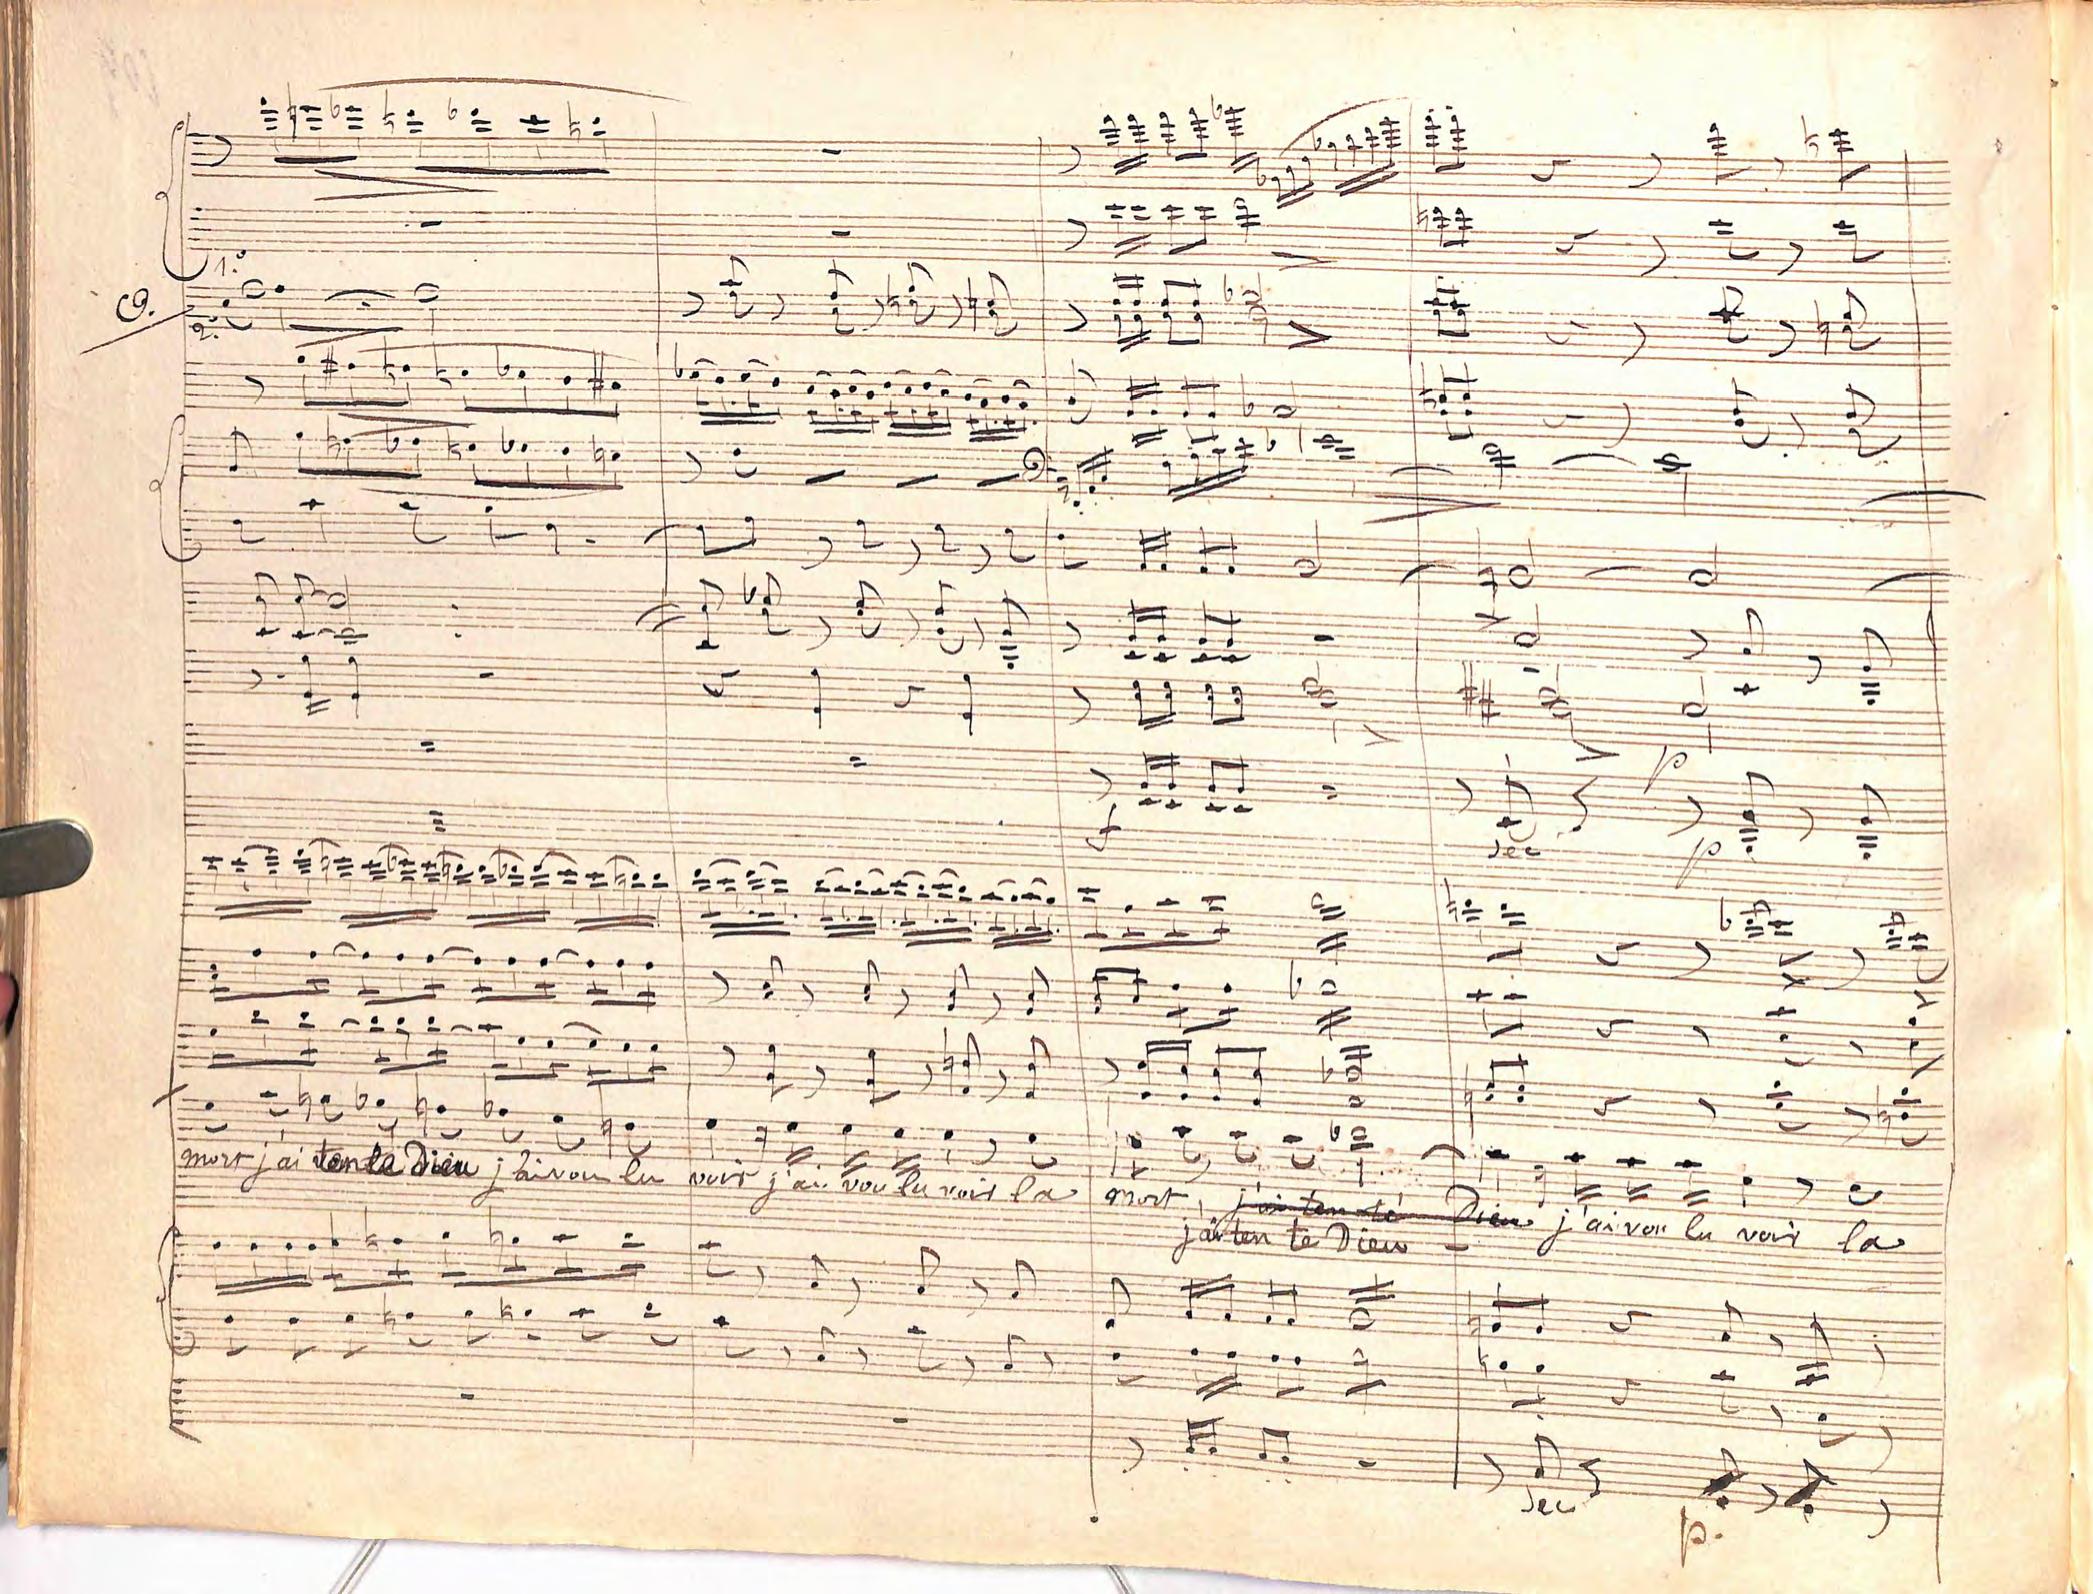 1.º
C.
2.
p
f
sec
p
mort j'ai tenté Dieu j'ai vou lu voir j'ai vou lu voir la mort j'ai ten té Dieu j'ai vou lu voir la
j'ai ten té Dieu –
sec
p.